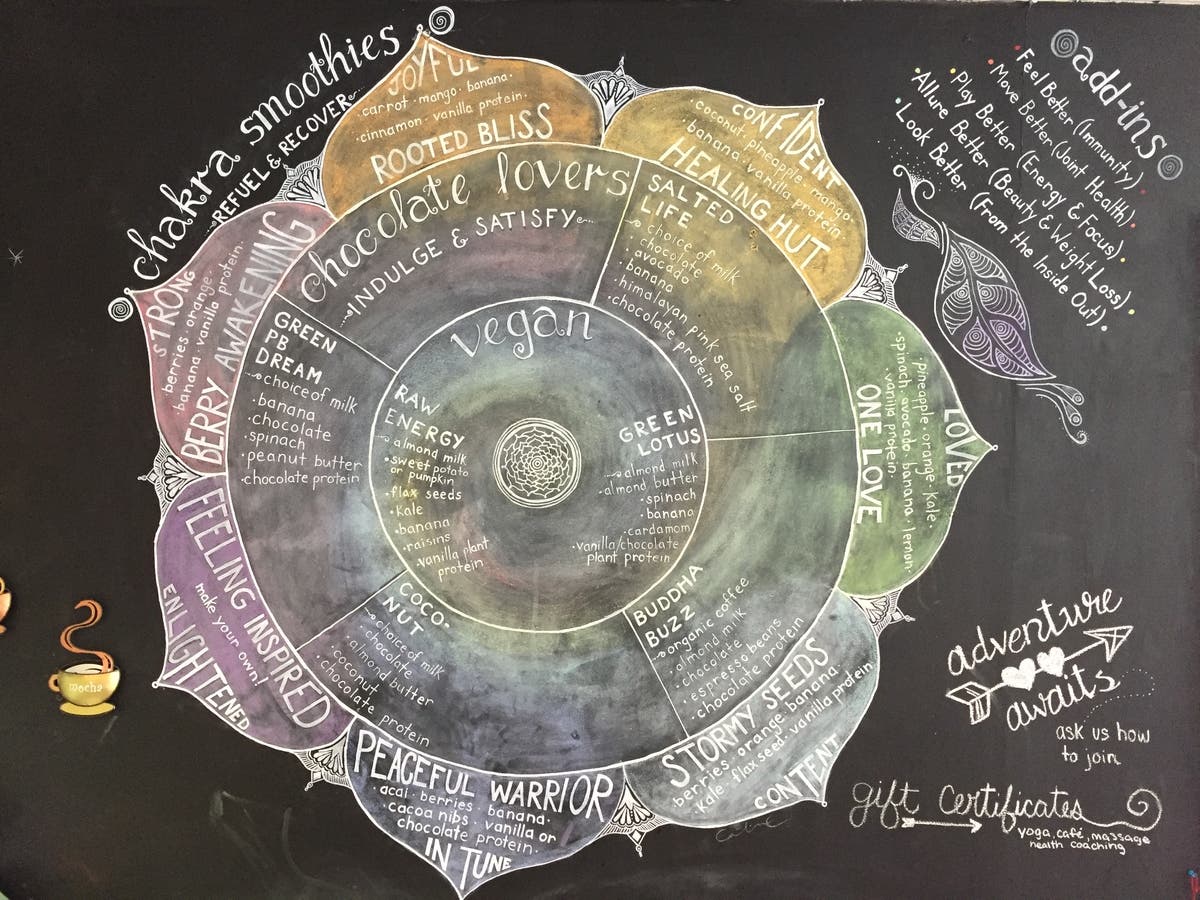 chakra smoothies
REFUEL & RECOVER
JOYFUL
carrot · mango · banana ·
· cinnamon · vanilla protein ·
ROOTED BLISS
CONFIDENT
· coconut · pineapple · mango ·
banana · vanilla protein
HEALING HUT
LOVED
· pineapple · orange · kale ·
spinach · avocado · banana · lemon
· vanilla protein ·
ONE LOVE
STORMY SEEDS
· berries · orange · banana
· kale · flax seed · vanilla protein
CONTENT
PEACEFUL WARRIOR
· acai · berries · banana ·
cacoa nibs · vanilla or
chocolate protein ·
IN TUNE
FEELING INSPIRED
make your own!
ENLIGHTENED
STRONG
· berries · orange ·
· banana · vanilla protein ·
BERRY AWAKENING
chocolate lovers
INDULGE & SATISFY
SALTED
LIFE
· choice of milk
· chocolate
· avocado
· banana
· himalayan pink sea salt
· chocolate protein
BUDDHA
BUZZ
· organic coffee
· almond milk
· chocolate
· espresso beans
· chocolate protein
COCO-
NUT
· choice of milk
· chocolate
· almond butter
· coconut
· chocolate protein
GREEN
PB
DREAM
· choice of milk
· banana
· chocolate
· spinach
· peanut butter
· chocolate protein
vegan
RAW
ENERGY
· almond milk
· sweet potato
or pumpkin
· flax seeds
· kale
· banana
· raisins
· vanilla plant
protein
GREEN
LOTUS
· almond milk
· almond butter
· spinach
· banana
· cardamom
· vanilla/chocolate
plant protein
add-ins
· Feel Better (Immunity) ·
· Move Better (Joint Health) ·
· Play Better (Energy & Focus) ·
· Allure Better (Beauty & Weight Loss) ·
· Look Better (From the Inside Out) ·
adventure
awaits
ask us how
to join
gift certificates
yoga, café, massage
health coaching
mocha